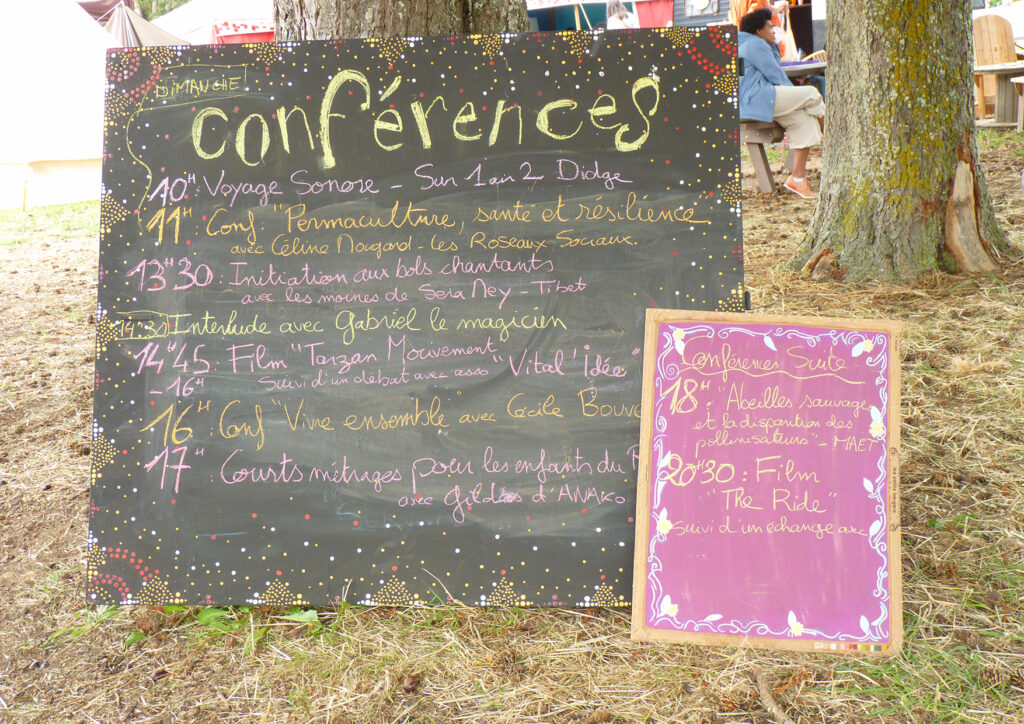 DIMANCHE
Conférences
10H: Voyage Sonore - Sun 1 air 2 Didge
11H: Conf "Permaculture, santé et résilience"
avec Céline Nougard - Les Roseaux Sociaux.
13H30: Initiation aux bols chantants
avec les moines de Sera Ney - Tibet
14:30 Interlude avec Gabriel le magicien
14H45: Film "Tarzan Mouvement
-16H Suivi d'un débat avec asso "Vital'Idée"
16H: Conf "Vivre ensemble" avec Cécile Bouve
17H: Courts métrages pour les enfants du
avec d'ANAKO
Conférences Suite
18H: Abeilles sauvage
et la disparition des
pollinisateurs" - MAET
20H30: Film
"The Ride"
suivi d'un échange avec